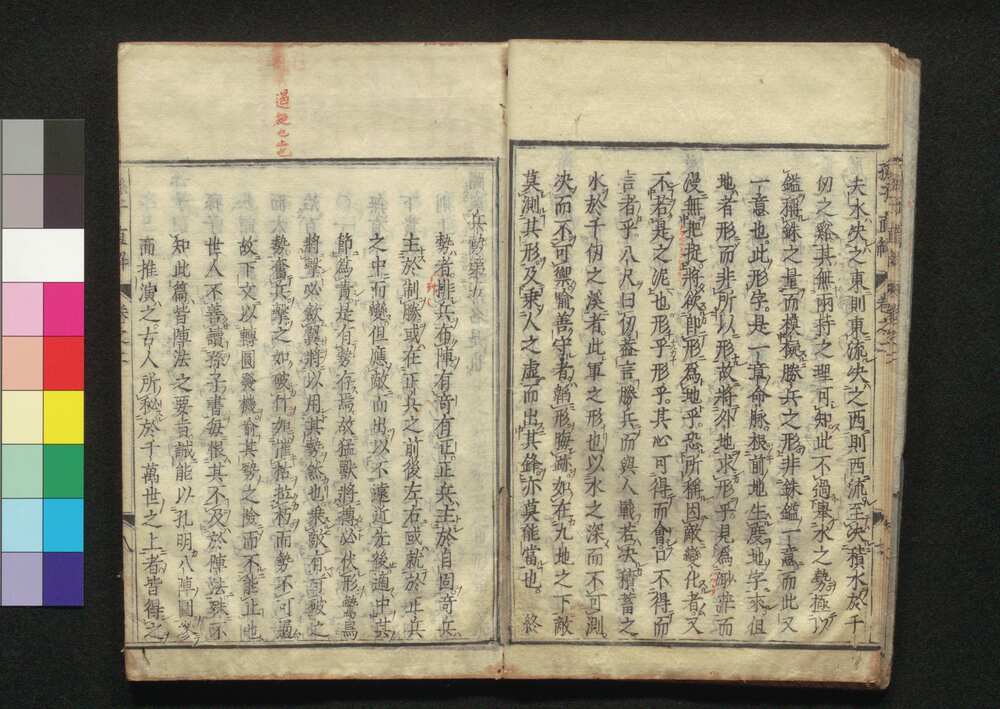 夫水决之東則東流决之西則西流至决積水於千
仞之谿其無兩持之理可知此不過畢水之勢極以
鎰稱銖之量而模擬勝兵之形非銖鎰一意而此又
一意也此形字是一章命脉根前地生度地字來但
地者形而非所以形故將外地求形乎見為
漫無把捉將欲即形為地乎恐所稱因敵變化者又
不若是之泥也形乎形乎其心可得而會口不得而
言者乎八尺曰仞蓋言勝兵而與人戰若决積蓄之
水於千仞之溪者此軍之形也以水之深而不可測
决而不可禦喻善守者韜形晦跡如在九地之下敵
莫測其形及乘人之虛而出其鋒亦莫能當也 終
兵勢第五
勢者排兵布陣有奇有正正兵主於自固奇兵
主於制勝或在正兵之前後左右或就於正兵
之中而變但應敵而出以不遠近先後適中其
節為貴是有勢存焉故猛獸將搏必伏形鷙鳥
將擊必斂翼將以用其勢然也乘敵有可破之
勢奮兵擊之如破竹如摧枯拉朽而勢不可遏
故下文以轉圓發機喻其勢之險而不能止也
世人不善讀孫子書每恨其不及於陣法殊不
知此篇皆陣法之要旨誠能以孔明八陣圖參
而推演之古人所秘於千萬世之上者皆得之